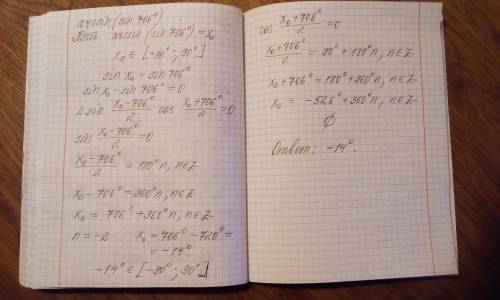 arcsin (sin 706°)
Пусть arcsin (sin 706°) = x₀
x₀ ∈ [-90°; 90°]
sin x₀ = sin 706°
sin x₀ - sin 706° = 0
2 sin (x₀-706°)/2 cos (x₀+706°)/2 = 0
sin (x₀-706°)/2 = 0
(x₀-706°)/2 = 180°n, n∈Z
x₀ - 706° = 360°n, n∈Z
x₀ = 706° + 360°n, n∈Z
n = -2 x₀ = 706° - 720° =
= -14°
-14° ∈ [-90°; 90°]
cos (x₀+706°)/2 = 0
(x₀+706°)/2 = 90° + 180°n, n∈Z
x₀ + 706° = 180° + 360°n, n∈Z
x₀ = -526° + 360°n, n∈Z
∅
Ответ: -14°.